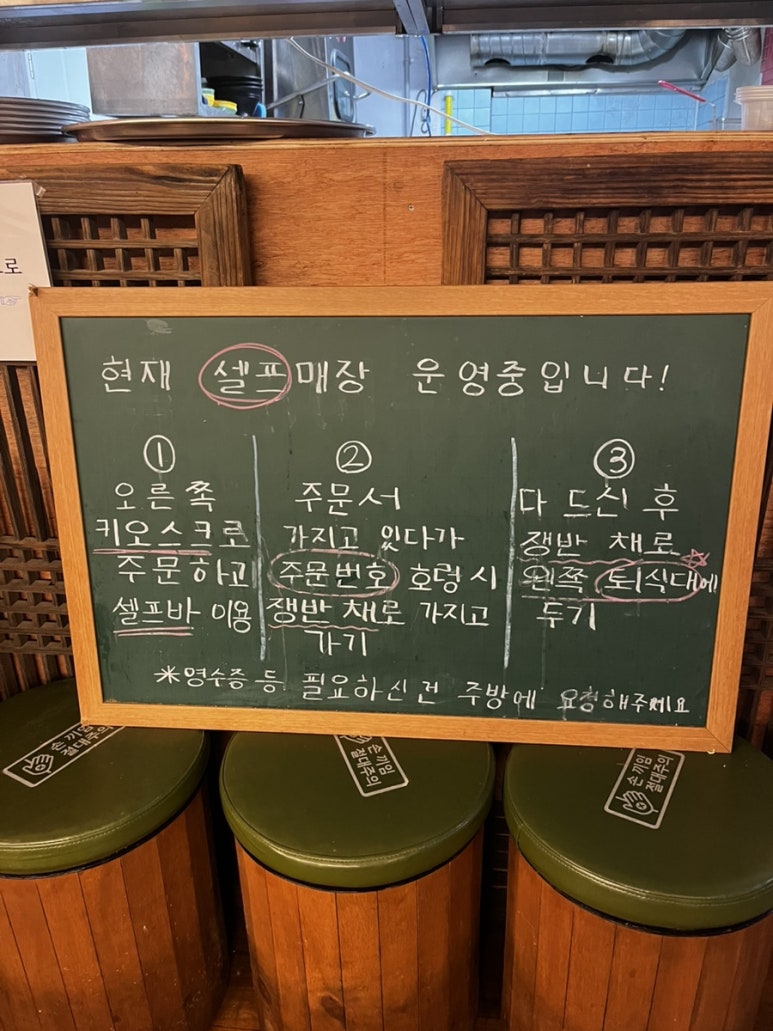 로
현재 셀프매장 운영중입니다!
①
오른쪽
키오스크로
주문하고
셀프바 이용
②
주문서
가지고 있다가
주문번호 호명 시
쟁반 채로 가지고
가기
③
다 드신 후
쟁반 채로
왼쪽 퇴식대에
두기
*영수증 등 필요하신 건 주방에 요청해주세요
손 끼임
절대주의
손 끼임
절대주의
손 끼임
절대주의